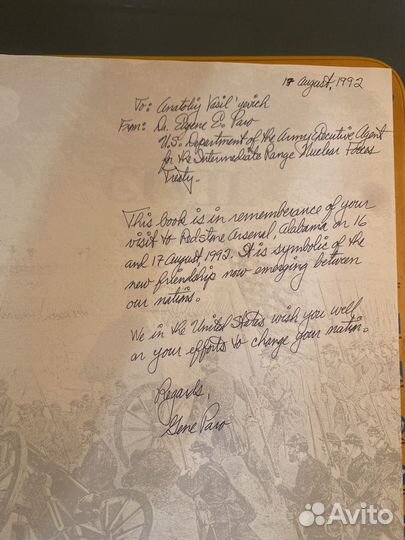 17 August, 1992
To: Anatoliy Vasil'yevich
From: Dr. Eugene E. Paro
U.S. Department of the Army Executive Agent
for the Intermediate Range Nuclear Forces
Treaty.
This book is in rememberance of your
visit to Redstone Arsenal, Alabama on 16
and 17 August, 1992. It is symbolic of the
new friendship now emerging between
our nations.
We in the United States wish you well
on your efforts to change your nation.
Regards,
Gene Paro
Avito